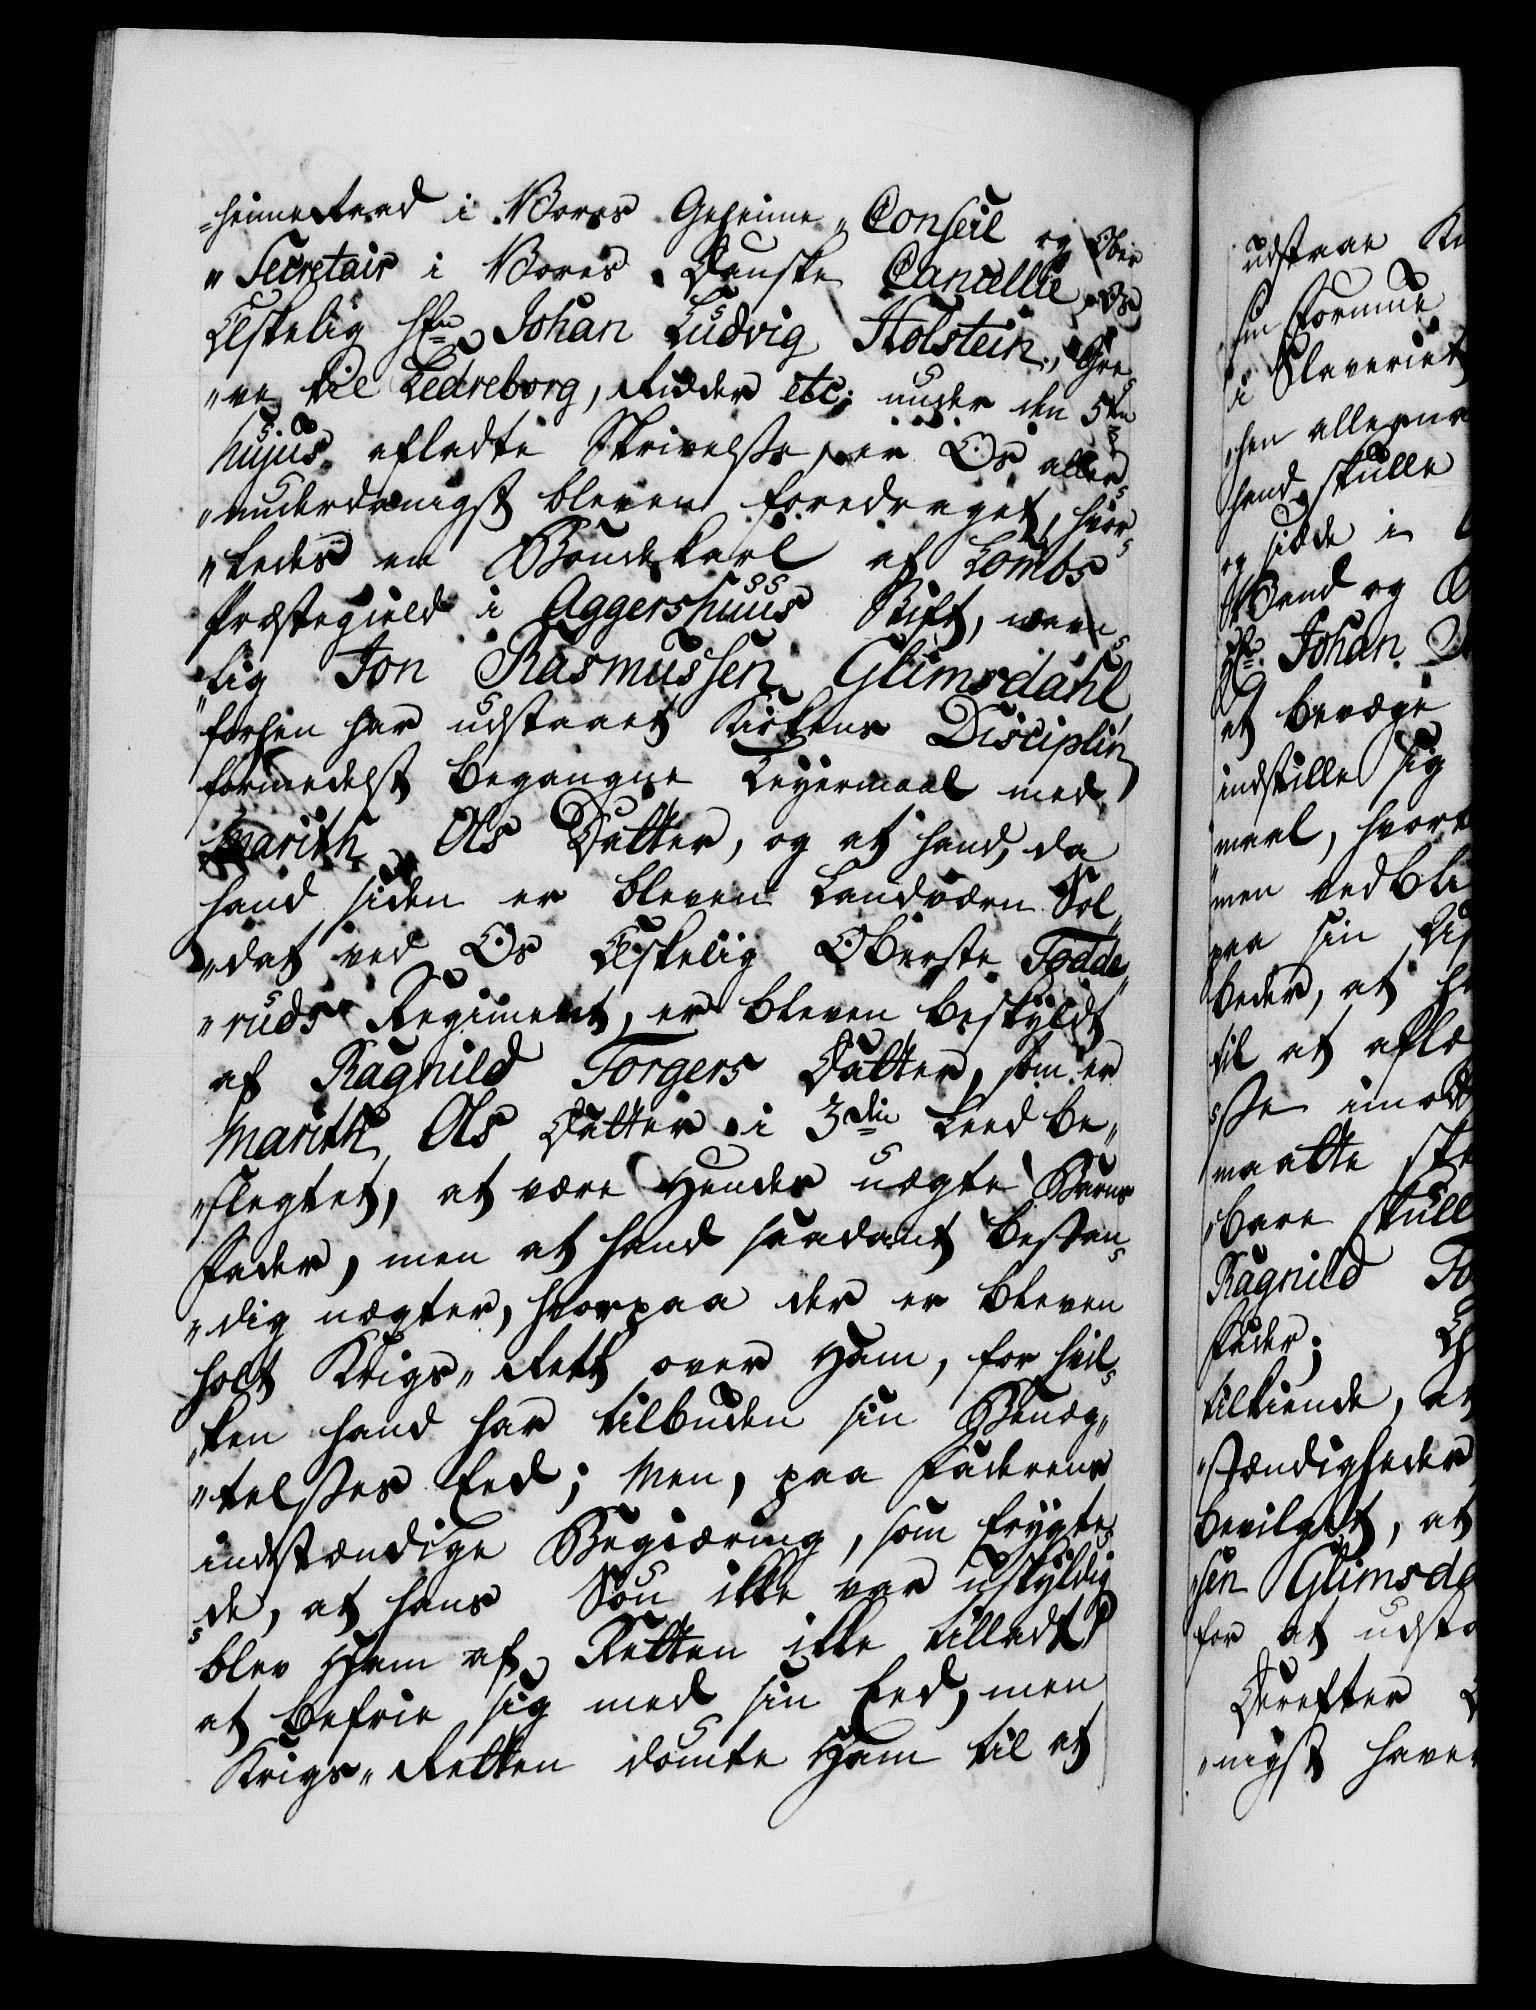 -heimeraad i Vores Geheime „ Conseil og Ober
„ Secretair i Vores Danske Cancellie, Os
Elskelig Hr. Johan Ludvig Holstein, Gre
„ve til Ledreborg, Ridder etc; under den 5te
hujus afladte Skrivelse, er Os aller
„underdanigst bleven foredraget, hvor
„ledes en Bondekarl af Lombs
Præstegield i Aggershuus Stift, navn
„lig Jon Rasmussen Glimsdahl
forhen har udstaaet Kirkens Disciplin
formedelst begangne Leyermaal med
Marith Ols Datter, og at hand, da
hand siden er bleven Landværn Sol„
„dat ved Os Elskelig Oberste Todde„
„ruds Regiment, er bleven beskyldt
af Ragnild Torgers Datter, som er
Marith Ols Datter i 3die Leed be„
„slegtet, at være Hendes uægte Barns
Fader, men at hand saadant bestan
„dig nægter, hvorpaa der er bleven
holt Krigs„Rett over Ham, for hvil
„ken hand har tilbuden sin Benæg„
„telses Eed; Men, paa Faderens
indstændige Begiæring, som frygte
de, at hans Søn ikke var uskyldig
blev Ham af Retten ikke tilladt
at befrie sig med sin Eed, men
Krigs„Retten dømte Ham til at
udstaae
sin Formue
i Slaveriet
„hen allerna
hand skulle
og sidde i
Vand og
Hr. Johan
at bevæge
indstille sig
maal, hvort
men vedbli
paa sin
beder, at
til at aflæ
„se imod
maatte ske
„bare skull
Ragnild To
Fader;
tilkiende, at
„stændigheder
bevilget, at
„sen Glimsda
for at udsta
Derefter
„nigst have